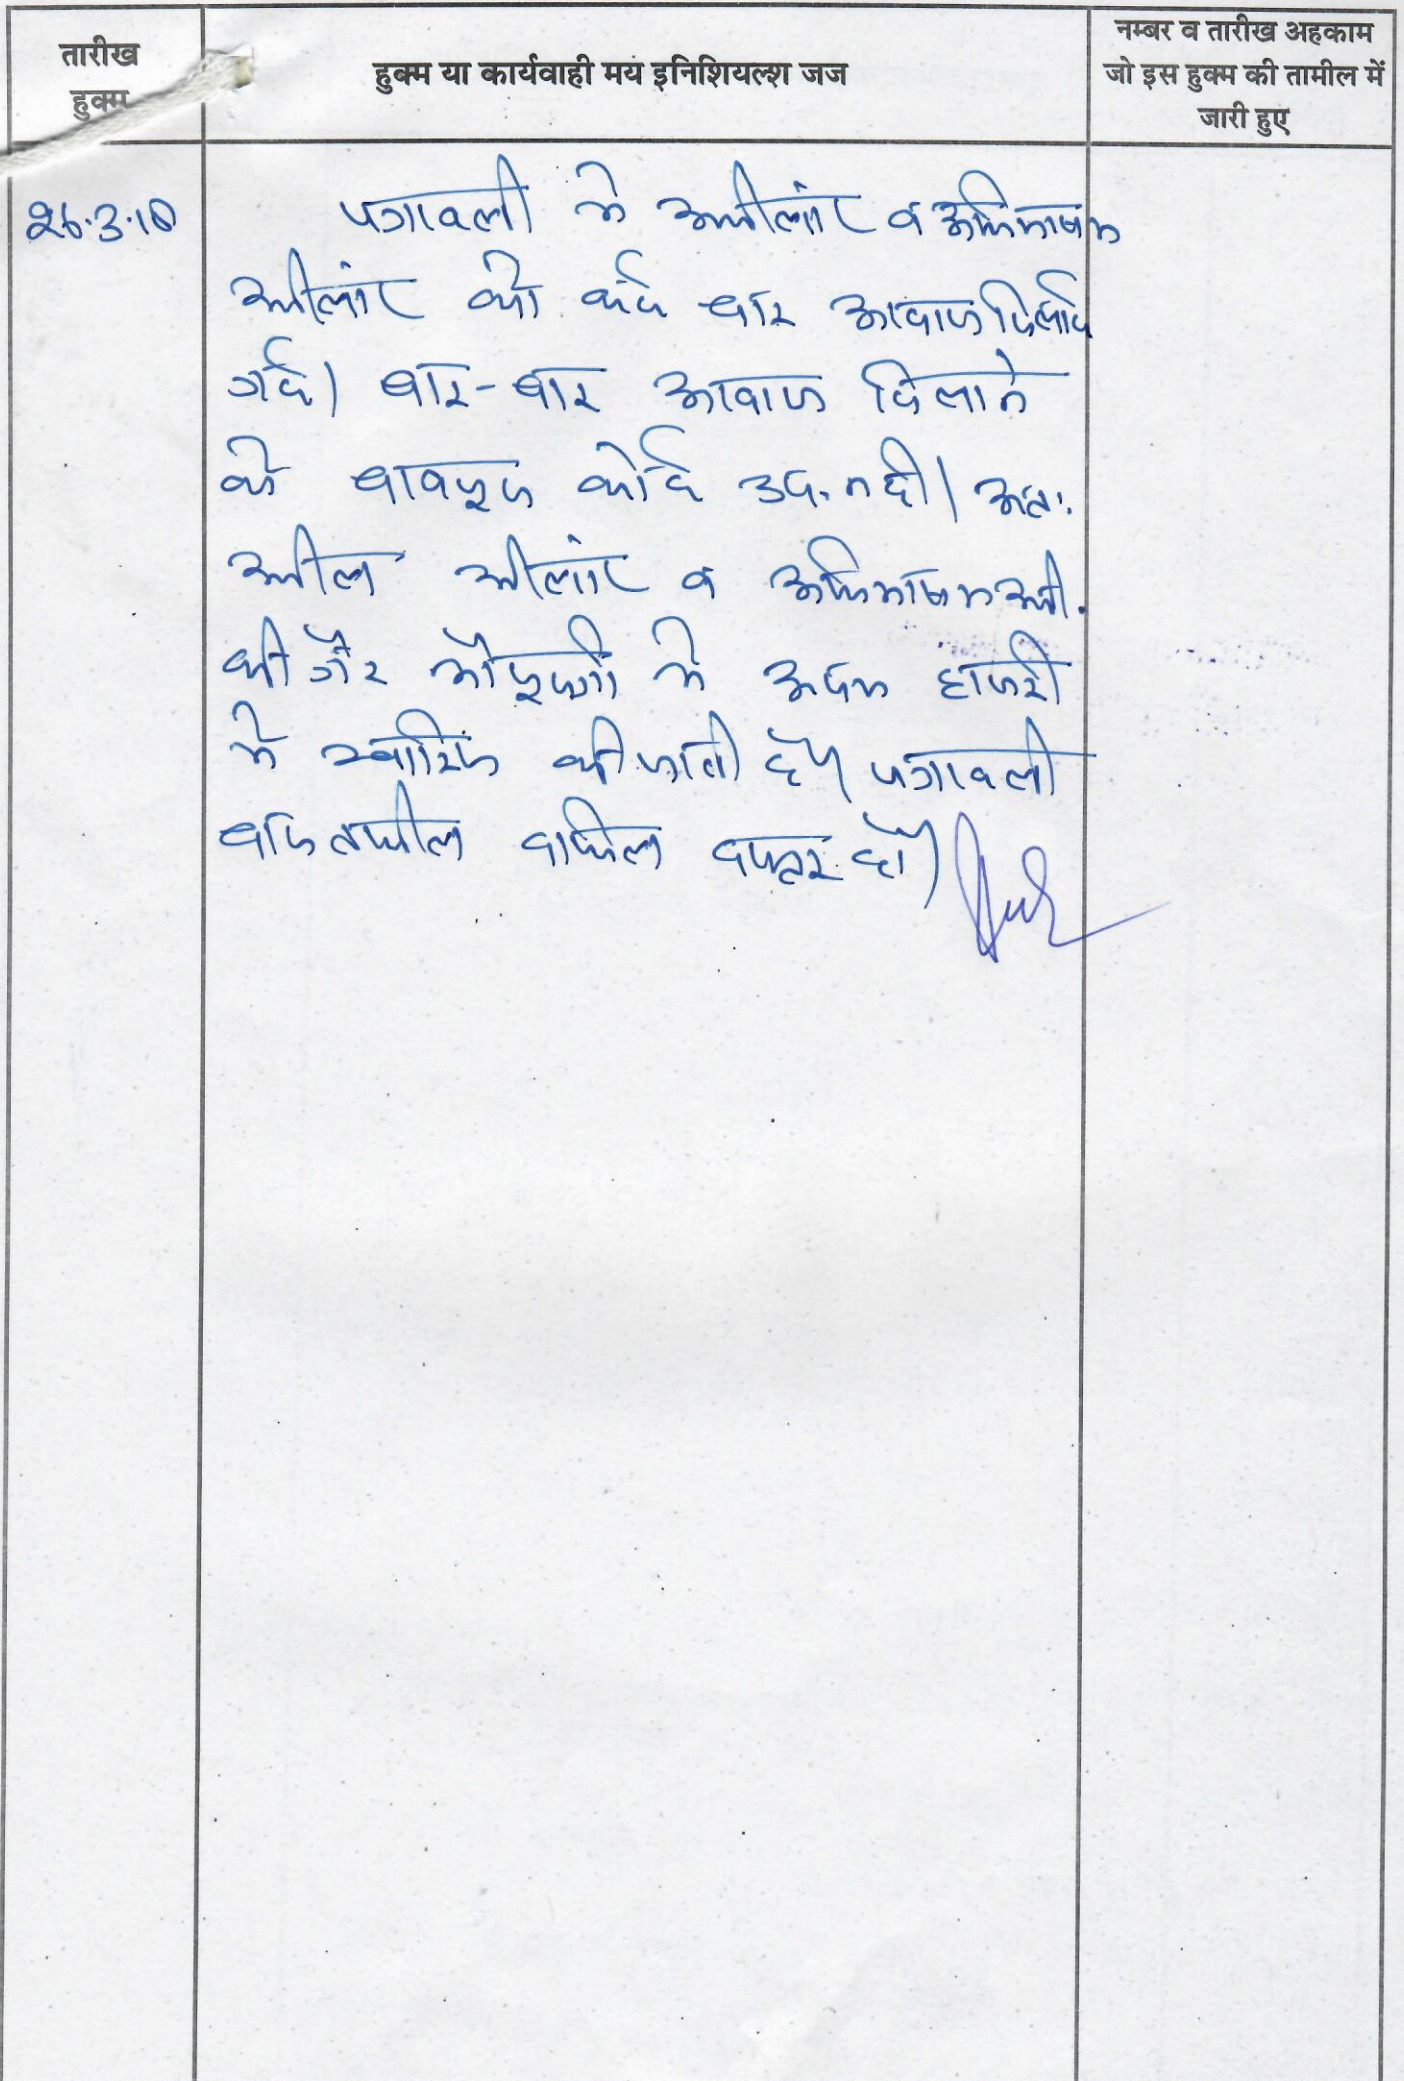 तारीख
हुक्म
हुक्म या कार्यवाही मय इनिशियल्श जज
नम्बर व तारीख अहकाम
जो इस हुक्म की तामील में
जारी हुए
26.3.18
पत्रावली में अपीलांट व अभिभाषक
अपीलांट को कई बार आवाज दिलाई
गई। बार-बार आवाज दिलाने
के बावजूद कोई उप. नही। अतः
अपील अपीलांट व अभिभाषक अपी.
की गैर मौजूदगी में अदम हाजरी
में खारिज की जाती है। पत्रावली
बाद तकमील दाखिल दफ्तर हो।